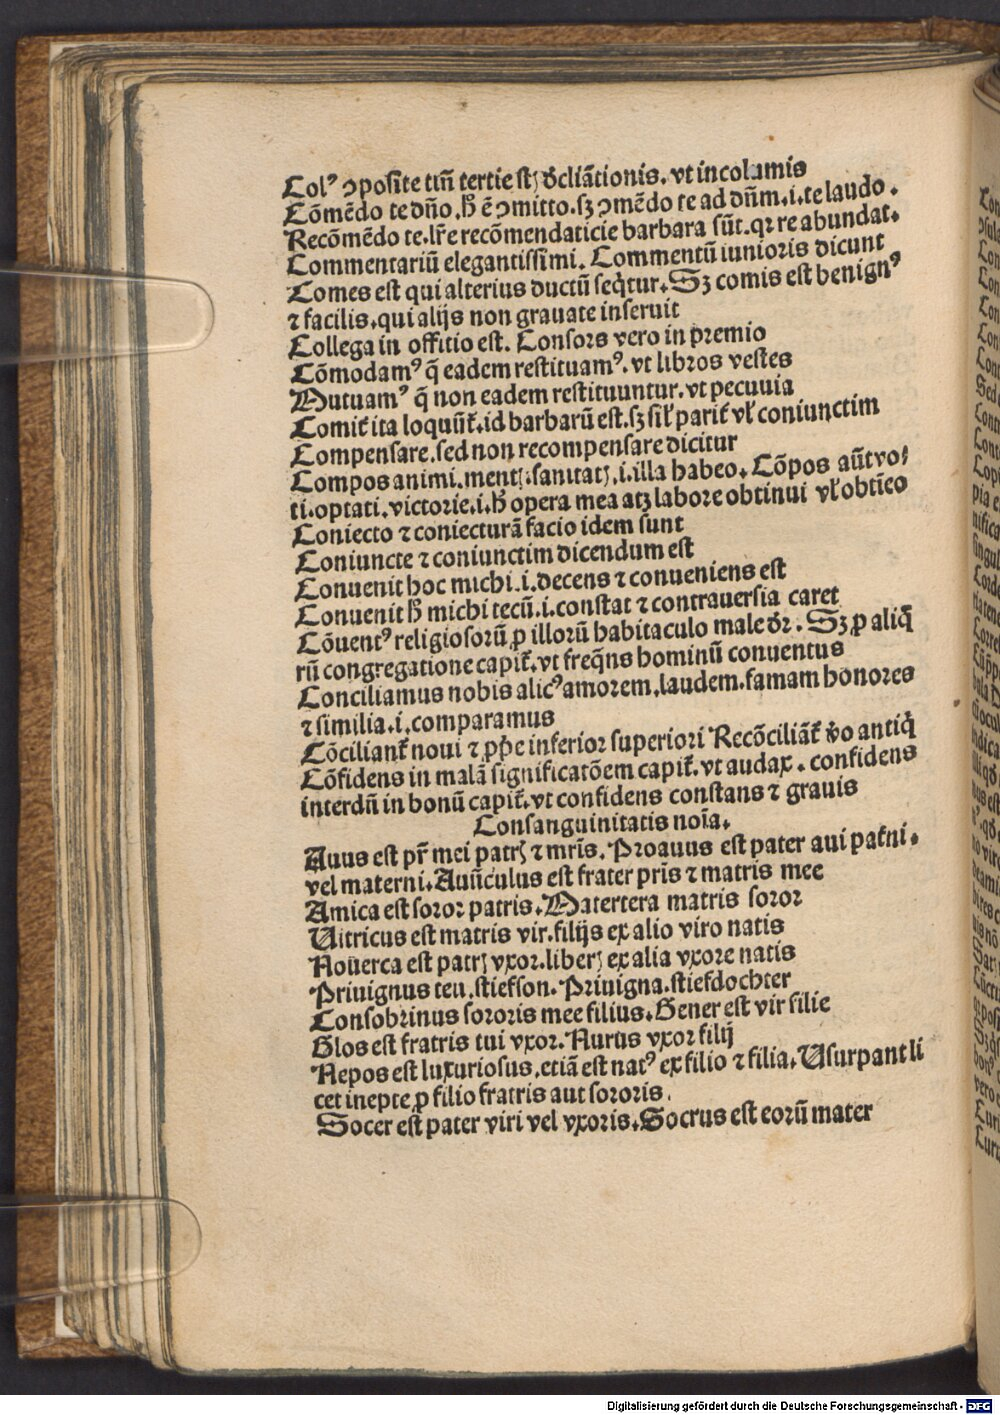 Colꝰ ↄposite tm̄ tertie stꝫ dcliātionis. vt incolumis
Cōmēdo te dño. h̄ ē ↄmitto. sꝫ ↄmēdo te ad dñm. i. te laudo.
Recōmēdo te. lr̄e recōmendaticie barbara sūt. qꝛ re abundat.
Commentariū elegantissimi. Commentū iunioris dicunt
Comes est qui alterius ductū seq̄tur. Sꝫ comis est benignꝰ
⁊ facilis. qui alijs non grauate inseruit
Collega in offitio est. Consors vero in premio
Cōmodamꝰ q̄ eadem restituamꝰ. vt libros vestes
Mutuamꝰ q̄ non eadem restituuntur. vt pecuuia
Comit̄ ita loquūt̄. id barbarū est. sꝫ sil̄ parit̄ vl̄ coniunctim
Compensare. sed non recompensare dicitur
Compos animi. mentꝫ. sanitatꝫ. i. illa habeo. Cōpos aūt vo/
ti. optati. victorie. i. h̄ opera mea atꝫ labore obtinui vl̄ obtīeo
Coniecto ⁊ coniecturā facio idem sunt
Coniuncte ⁊ coniunctim dicendum est
Conuenit hoc michi. i. decens ⁊ conueniens est
Conuenit h̄ michi tecū. i. constat ⁊ contrauersia caret
Cōuentꝰ religiosorū ꝓ illorū habitaculo male dr̄. Sꝫ ꝓ aliq̄
rū congregatione capit̄. vt freq̄ns hominū conuentus
Conciliamus nobis alicꝰ amorem. laudem. famam honores
⁊ similia. i. comparamus
Cōciliant̄ noui ⁊ ꝓpe inferior superiori Recōciliāt̄ vo antiq̄
Cōfidens in malā significatōem capit̄. vt audax. confidens
interdū in bonū capit̄. vt confidens constans ⁊ grauis
Consanguinitatis noīa.
Auus est pr̄ mei patrꝫ ⁊ mr̄is. Proauus est pater aui pat̄ni.
vel materni. Auūculus est frater pris ⁊ matris mee
Amica est soror patris. Matertera matris soror
Uitricus est matris vir. filijs ex alio viro natis
Nouerca est patrꝫ vxor. liberꝫ ex alia vxore natis
Priuignus teu. stiefson. Priuigna. stiefdochter
Consobrinus sororis mee filius. Gener est vir filie
Glos est fratris tui vxor. Nurus vxor filij
Nepos est luxuriosus. etiā est natꝰ ex filio ⁊ filia. Usurpant li
cet inepte ꝓ filio fratris aut sororis.
Socer est pater viri vel vxoris. Socrus est eorū mater
Digitalisierung gefördert durch die Deutsche Forschungsgemeinschaft - DFG